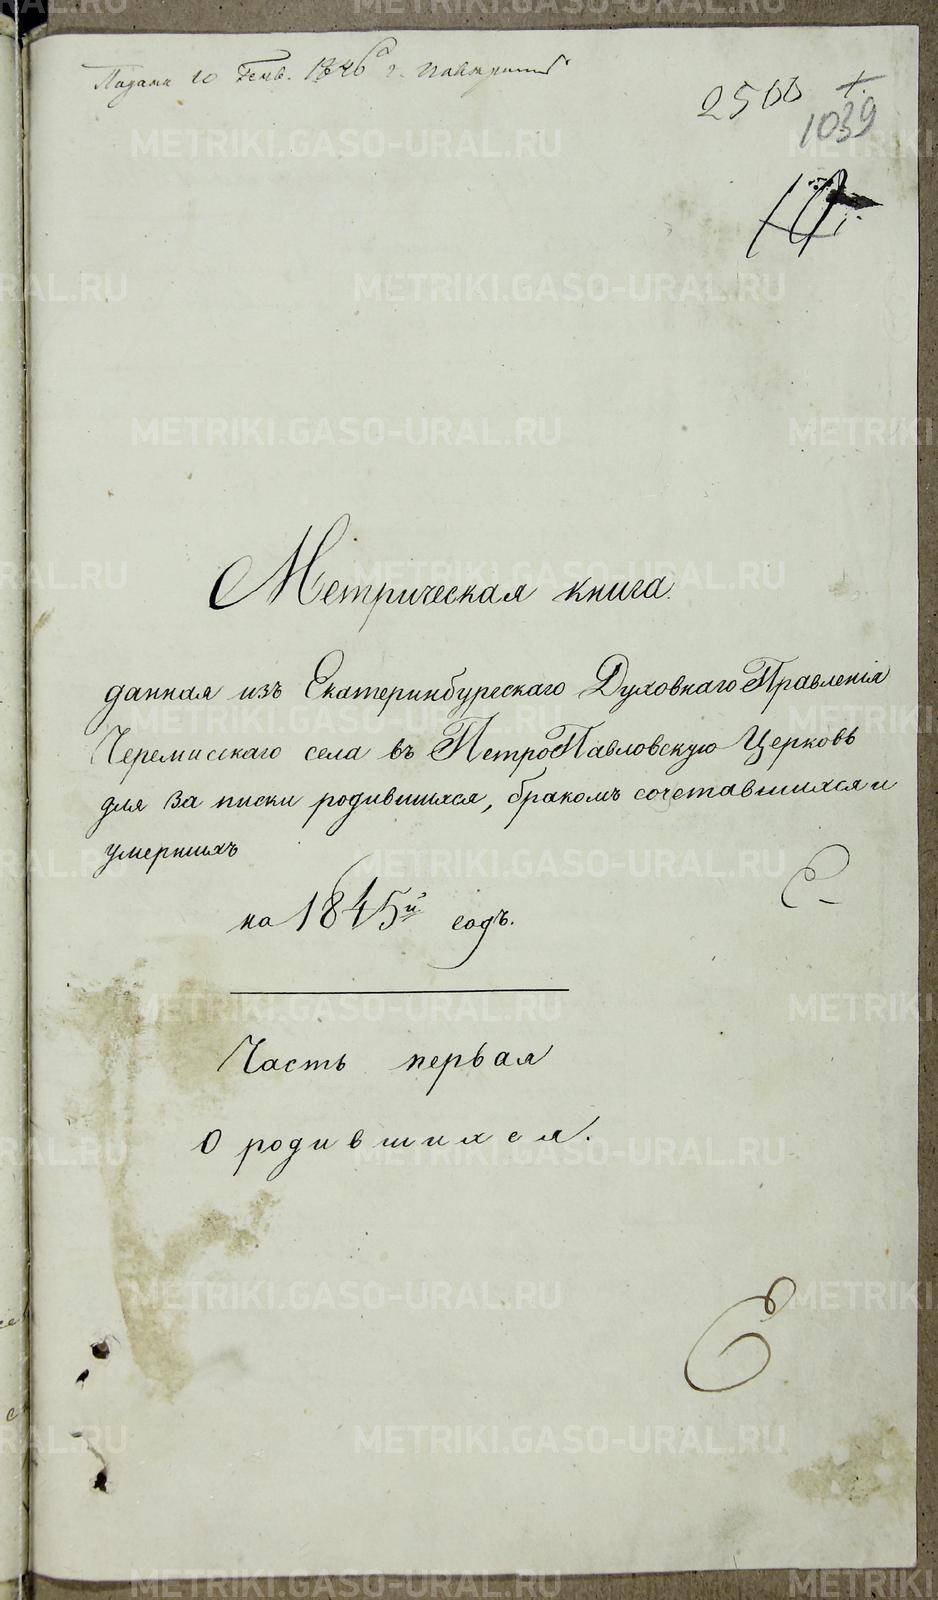 Подана 10 Генв. 1846 г.
2500
1039
Метрическая книга
данная изъ Екатеринбургскаго Духовнаго Правленія
Черемисскаго села въ ПетроПавловскую Церковь
для за писки родившихся, бракомъ сочетавшихся и
умершихъ
на 1845й годъ.
Часть первая
О родившихся.
METRIKI.GASO-URAL.RU